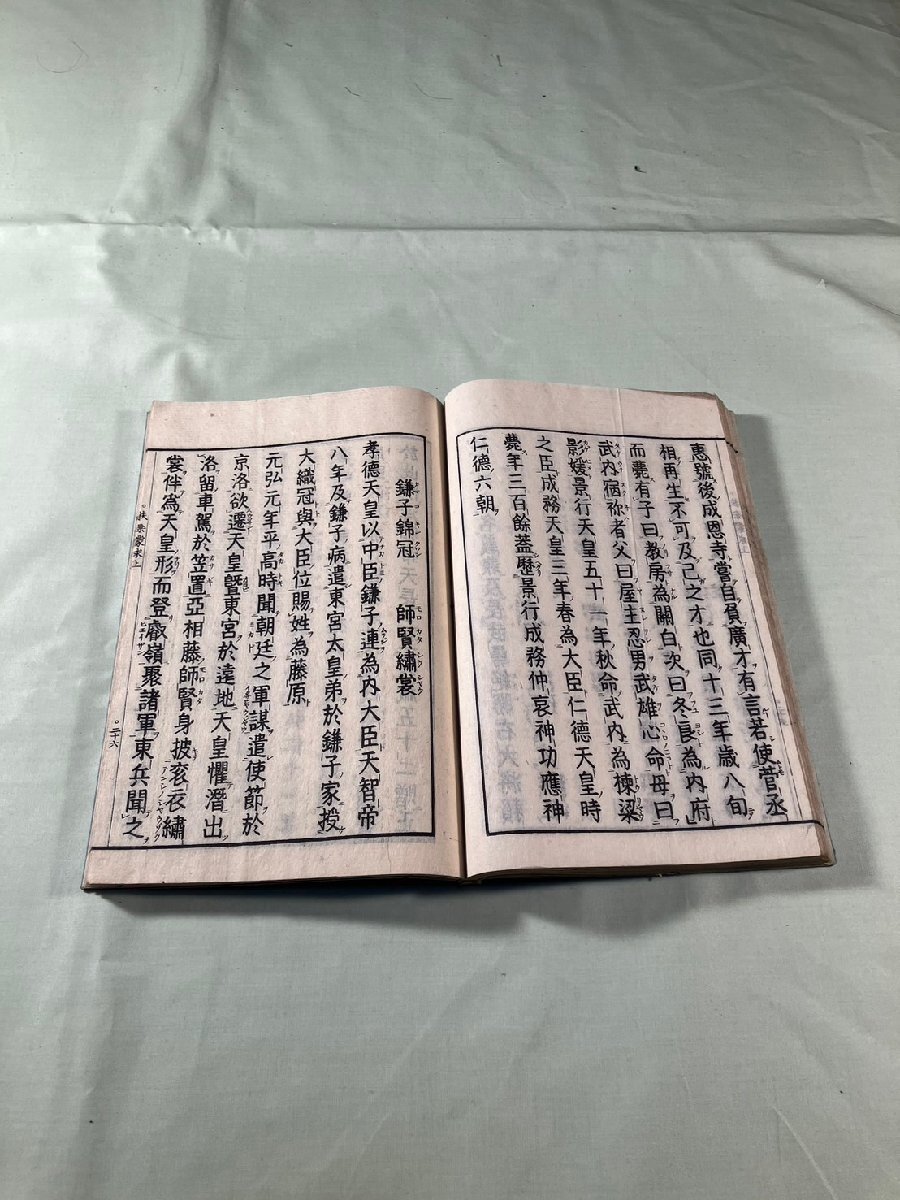 惠號後成恩寺嘗自負廣才有言若使菅丞
相再生不可及己之才也同十三年歲八旬
而薨有子曰教房為關白次曰冬良為内府
武内宿祢者父曰屋主忍男武雄心命母曰
影媛景行天皇五十一年秋命武内為棟梁
之臣成務天皇三年春為大臣仁德天皇時
薨年三百餘蓋歷景行成務仲哀神功應神
仁德六朝
鎌子錦冠 師賢繡裳
孝德天皇以中臣鎌子連為内大臣天智帝
八年及鎌子病遣東宮太皇弟於鎌子家授
大織冠與大臣位賜姓為藤原
元弘元年平高時聞朝廷之軍謀遣使節於
京洛欲遷天皇曁東宮於遠地天皇懼潛出
洛留車駕於笠置亞相藤師賢身披衮衣繡
裳伴為天皇形而登叡嶺聚諸軍東兵聞之
扶桑蒙求上
二十六